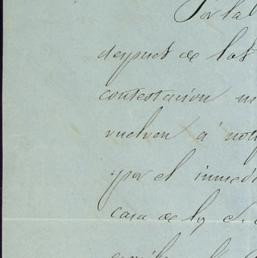 Por la
despues de las
contestacion
vuelven a not
por el inmedi
casa de